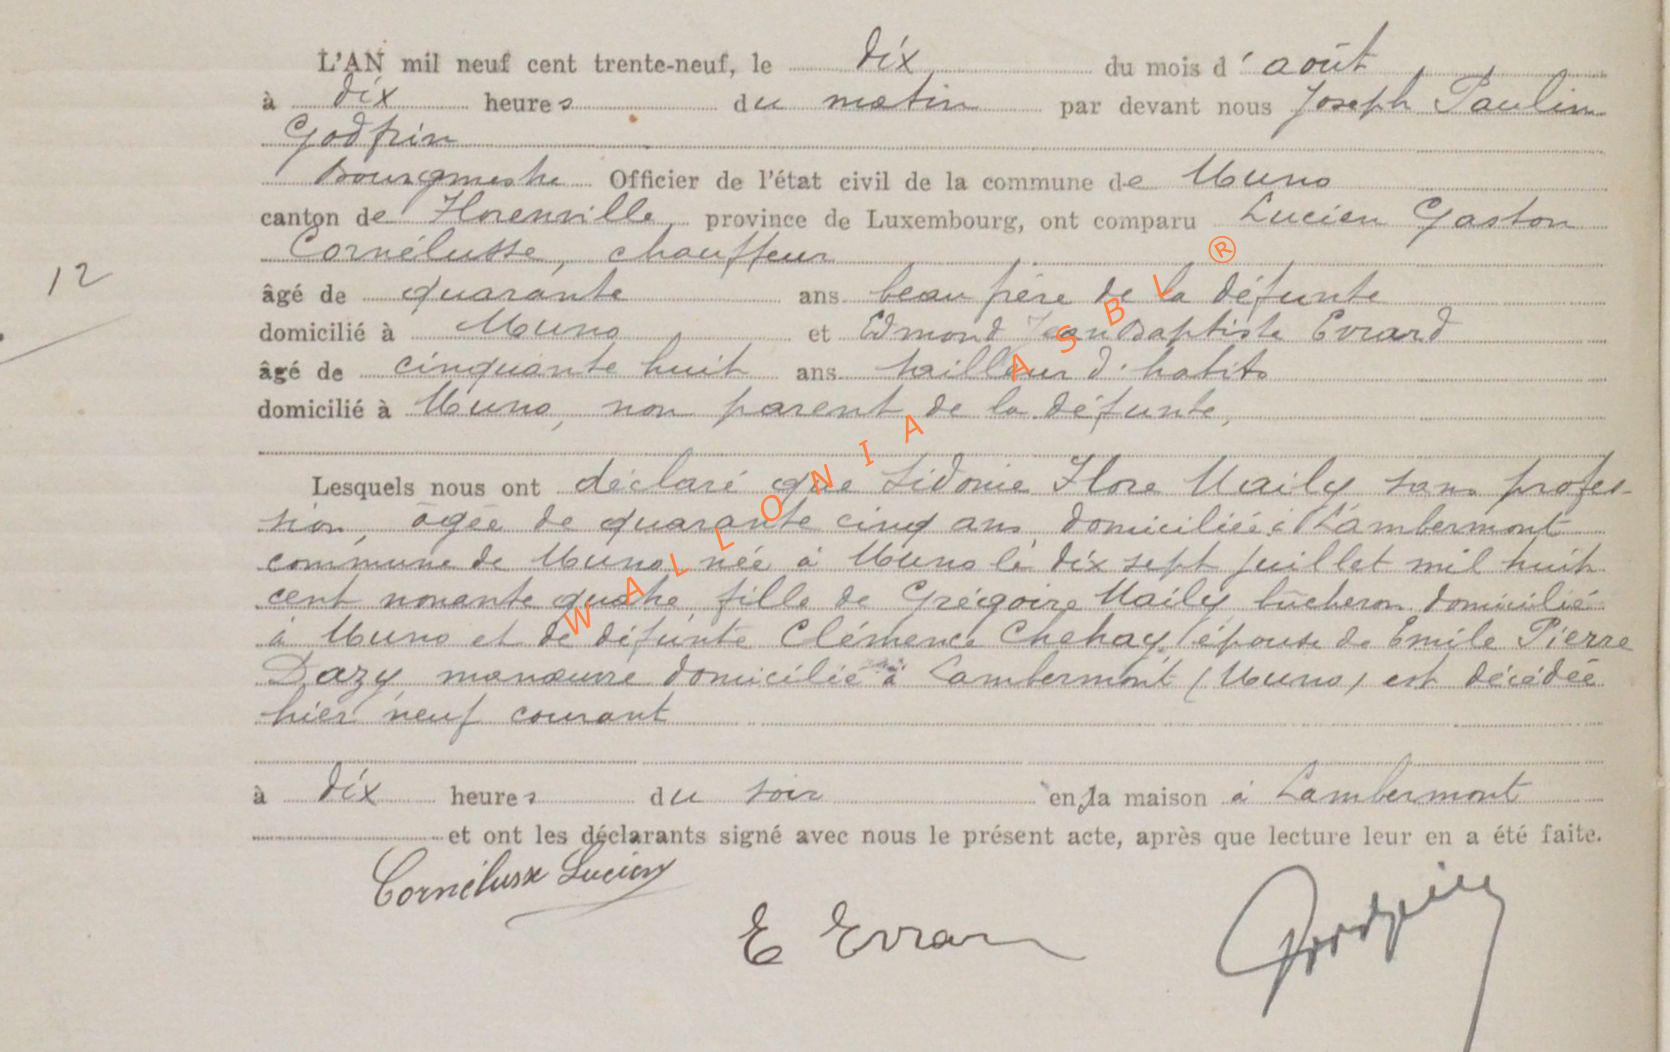 L'AN mil neuf cent trente-neuf, le dix du mois d'août
à dix heures du matin par devant nous Joseph Paulin
Godfrin
Bourgmestre Officier de l'état civil de la commune de Muno
canton de Florenville province de Luxembourg, ont comparu Lucien Gaston
Cornélusse, chauffeur
âgé de quarante ans beau frère de la défunte
domicilié à Muno et Edmond Jean Baptiste Evrard
âgé de cinquante huit ans tailleur d'habits
domicilié à Muno, non parent de la défunte,
Lesquels nous ont déclaré que Sidonie Flore Maily sans profes-
sion, âgée de quarante cinq ans domiciliée à Lambermont
commune de Muno née à Muno le dix sept juillet mil huit
cent nonante quatre, fille de Grégoire Maily bûcheron domicilié
à Muno et de défunte Clémence Chehay, épouse de Emile Pierre
Dazy, manœuvre domicilié à Lambermont (Muno) est décédée
hier neuf courant
à dix heures du soir en la maison à Lambermont
et ont les déclarants signé avec nous le présent acte, après que lecture leur en a été faite.
Cornélusse Lucien
E Evrard
Godfrin
12
WALLONIA ASBL ®